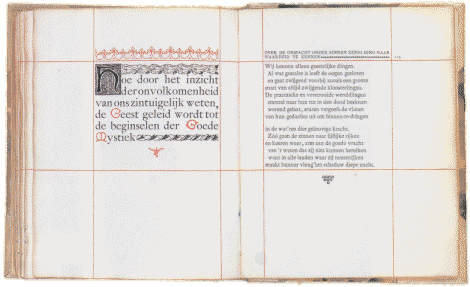 Hoe door het inzicht
der onvolkomenheid
van ons zintuigelijk weten,
de Geest geleid wordt tot
de beginselen der Goede
Mystiek
OVER DE ONMACHT ONZER ZINNEN EENIG DING NAAR
WAARHEID TE KENNEN
Wij kennen alleen geestelijke dingen.
Al wat gestalte is heeft de oogen gesloten
en gaat zwijgend voorbij zooals een groote
stoet van altijd zwijgende kloosterlingen.
De practische en vereerende wereldlingen
starend naar hun tot in den dood
werend gelaat, sturen vergeefs de vloten
van hun gedachte uit om binnen te dringen
in de geheime kracht.
Zóó gaan de zinnen naar lijflijke rijken
en keeren weer, arm aan de goede vracht
van 't weten dat zij niet kunnen bereiken
waar in alle landen waar zij
donker vleugelen schaduw diepe nacht.